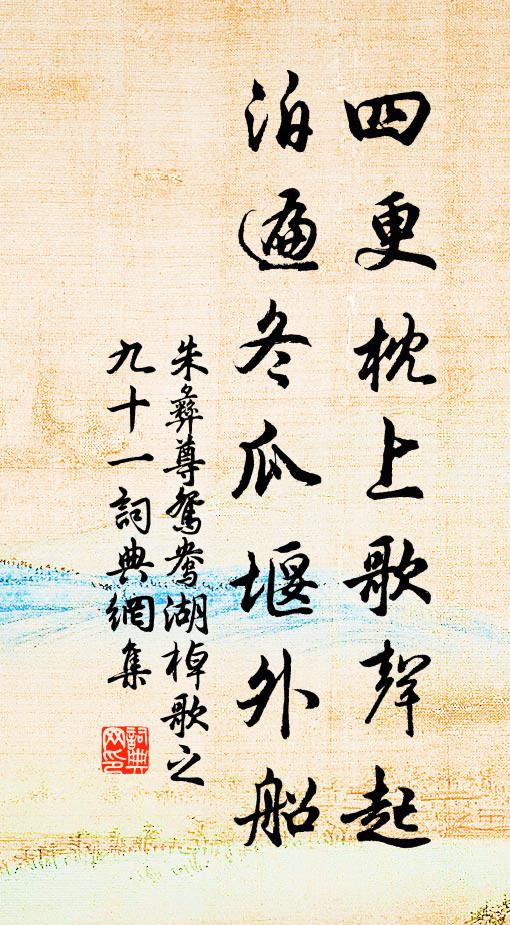 四更枕上歌聲起
泊遍冬瓜堰外船
朱彝尊鴛鴦湖棹歌之
九十一詞典網集
詞典
网印